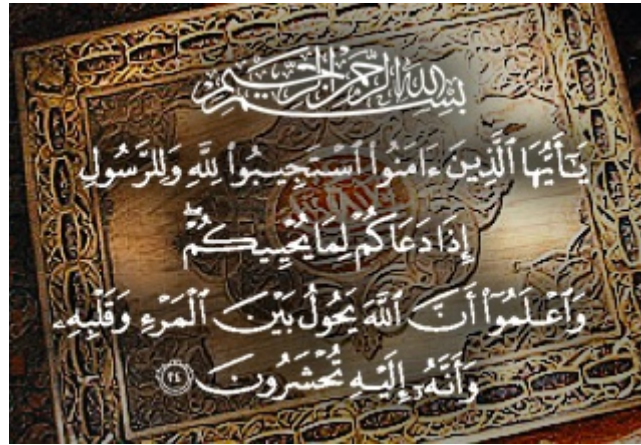 بِسْمِ اللَّهِ الرَّحْمَٰنِ الرَّحِيمِ
يَٰٓأَيُّهَا ٱلَّذِينَ ءَامَنُوا۟ ٱسْتَجِيبُوا۟ لِلَّهِ وَلِلرَّسُولِ
إِذَا دَعَاكُمْ لِمَا يُحْيِيكُمْ ۖ
وَٱعْلَمُوٓا۟ أَنَّ ٱللَّهَ يَحُولُ بَيْنَ ٱلْمَرْءِ وَقَلْبِهِۦ
وَأَنَّهُۥٓ إِلَيْهِ تُحْشَرُونَ ٢٤